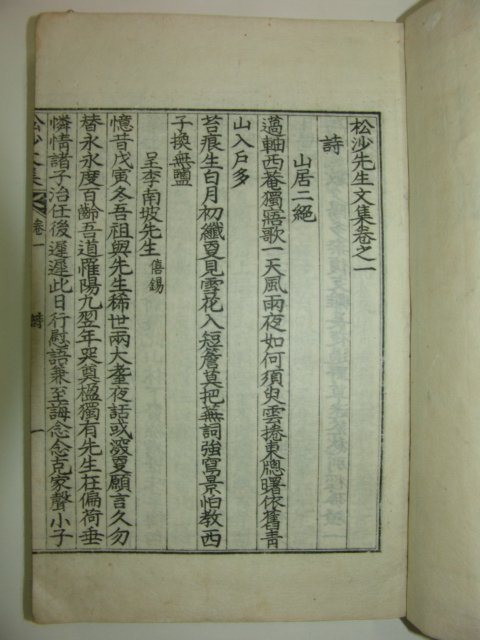 松沙先生文集卷之一
詩
山居二絕
薖軸西菴獨寤歌一天風雨夜如何須臾雲捲東牕曙依舊靑
山入戶多
苔痕生白月初纖更見雪花入短簷莫把蕪詞強寫景怕教西
子換無鹽
呈李南坡先生 僖錫
憶昔戊寅冬吾祖與先生稀世兩大耋夜話或深更願言久勿
替永永度百齡吾道罹陽九翌年哭奠楹獨有先生在偏荷垂
憐情諸子治任後遲遲此日行慰語兼至誨念念克家聲小子
松沙文集 卷一 詩 一